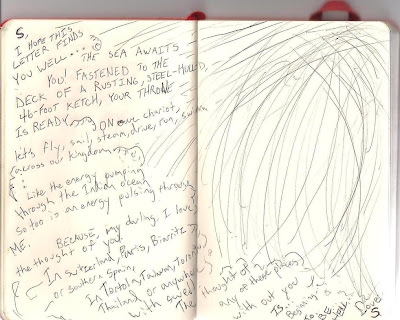 S,
I HOPE THIS
LETTER FINDS
YOU WELL...
THE SEA AWAITS
YOU! FASTENED TO THE
DECK OF A RUSTING, STEEL-HULLED,
46-FOOT KETCH, YOUR THRONE
IS READY
ON our chariot,
let's fly, sail, steam, drive, run, swim
across our kingdom
Like the energy pumping
through the Indian ocean,
so too is an energy pulsing through
ME.
BECAUSE, my darling, I love
the thought of you.
In Switzerland, Paris, Biarritz
or southern Spain,
In Tortola, Taiwan, Toronto
Thailand or anywhere
with sweet
The
thought of
any of these places
with out you
IS
Beginning